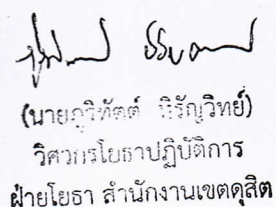 (นายภูวิทัตต์ หิรัญวิทย์)
วิศวกรโยธาปฏิบัติการ
ฝ่ายโยธา สำนักงานเขตดุสิต